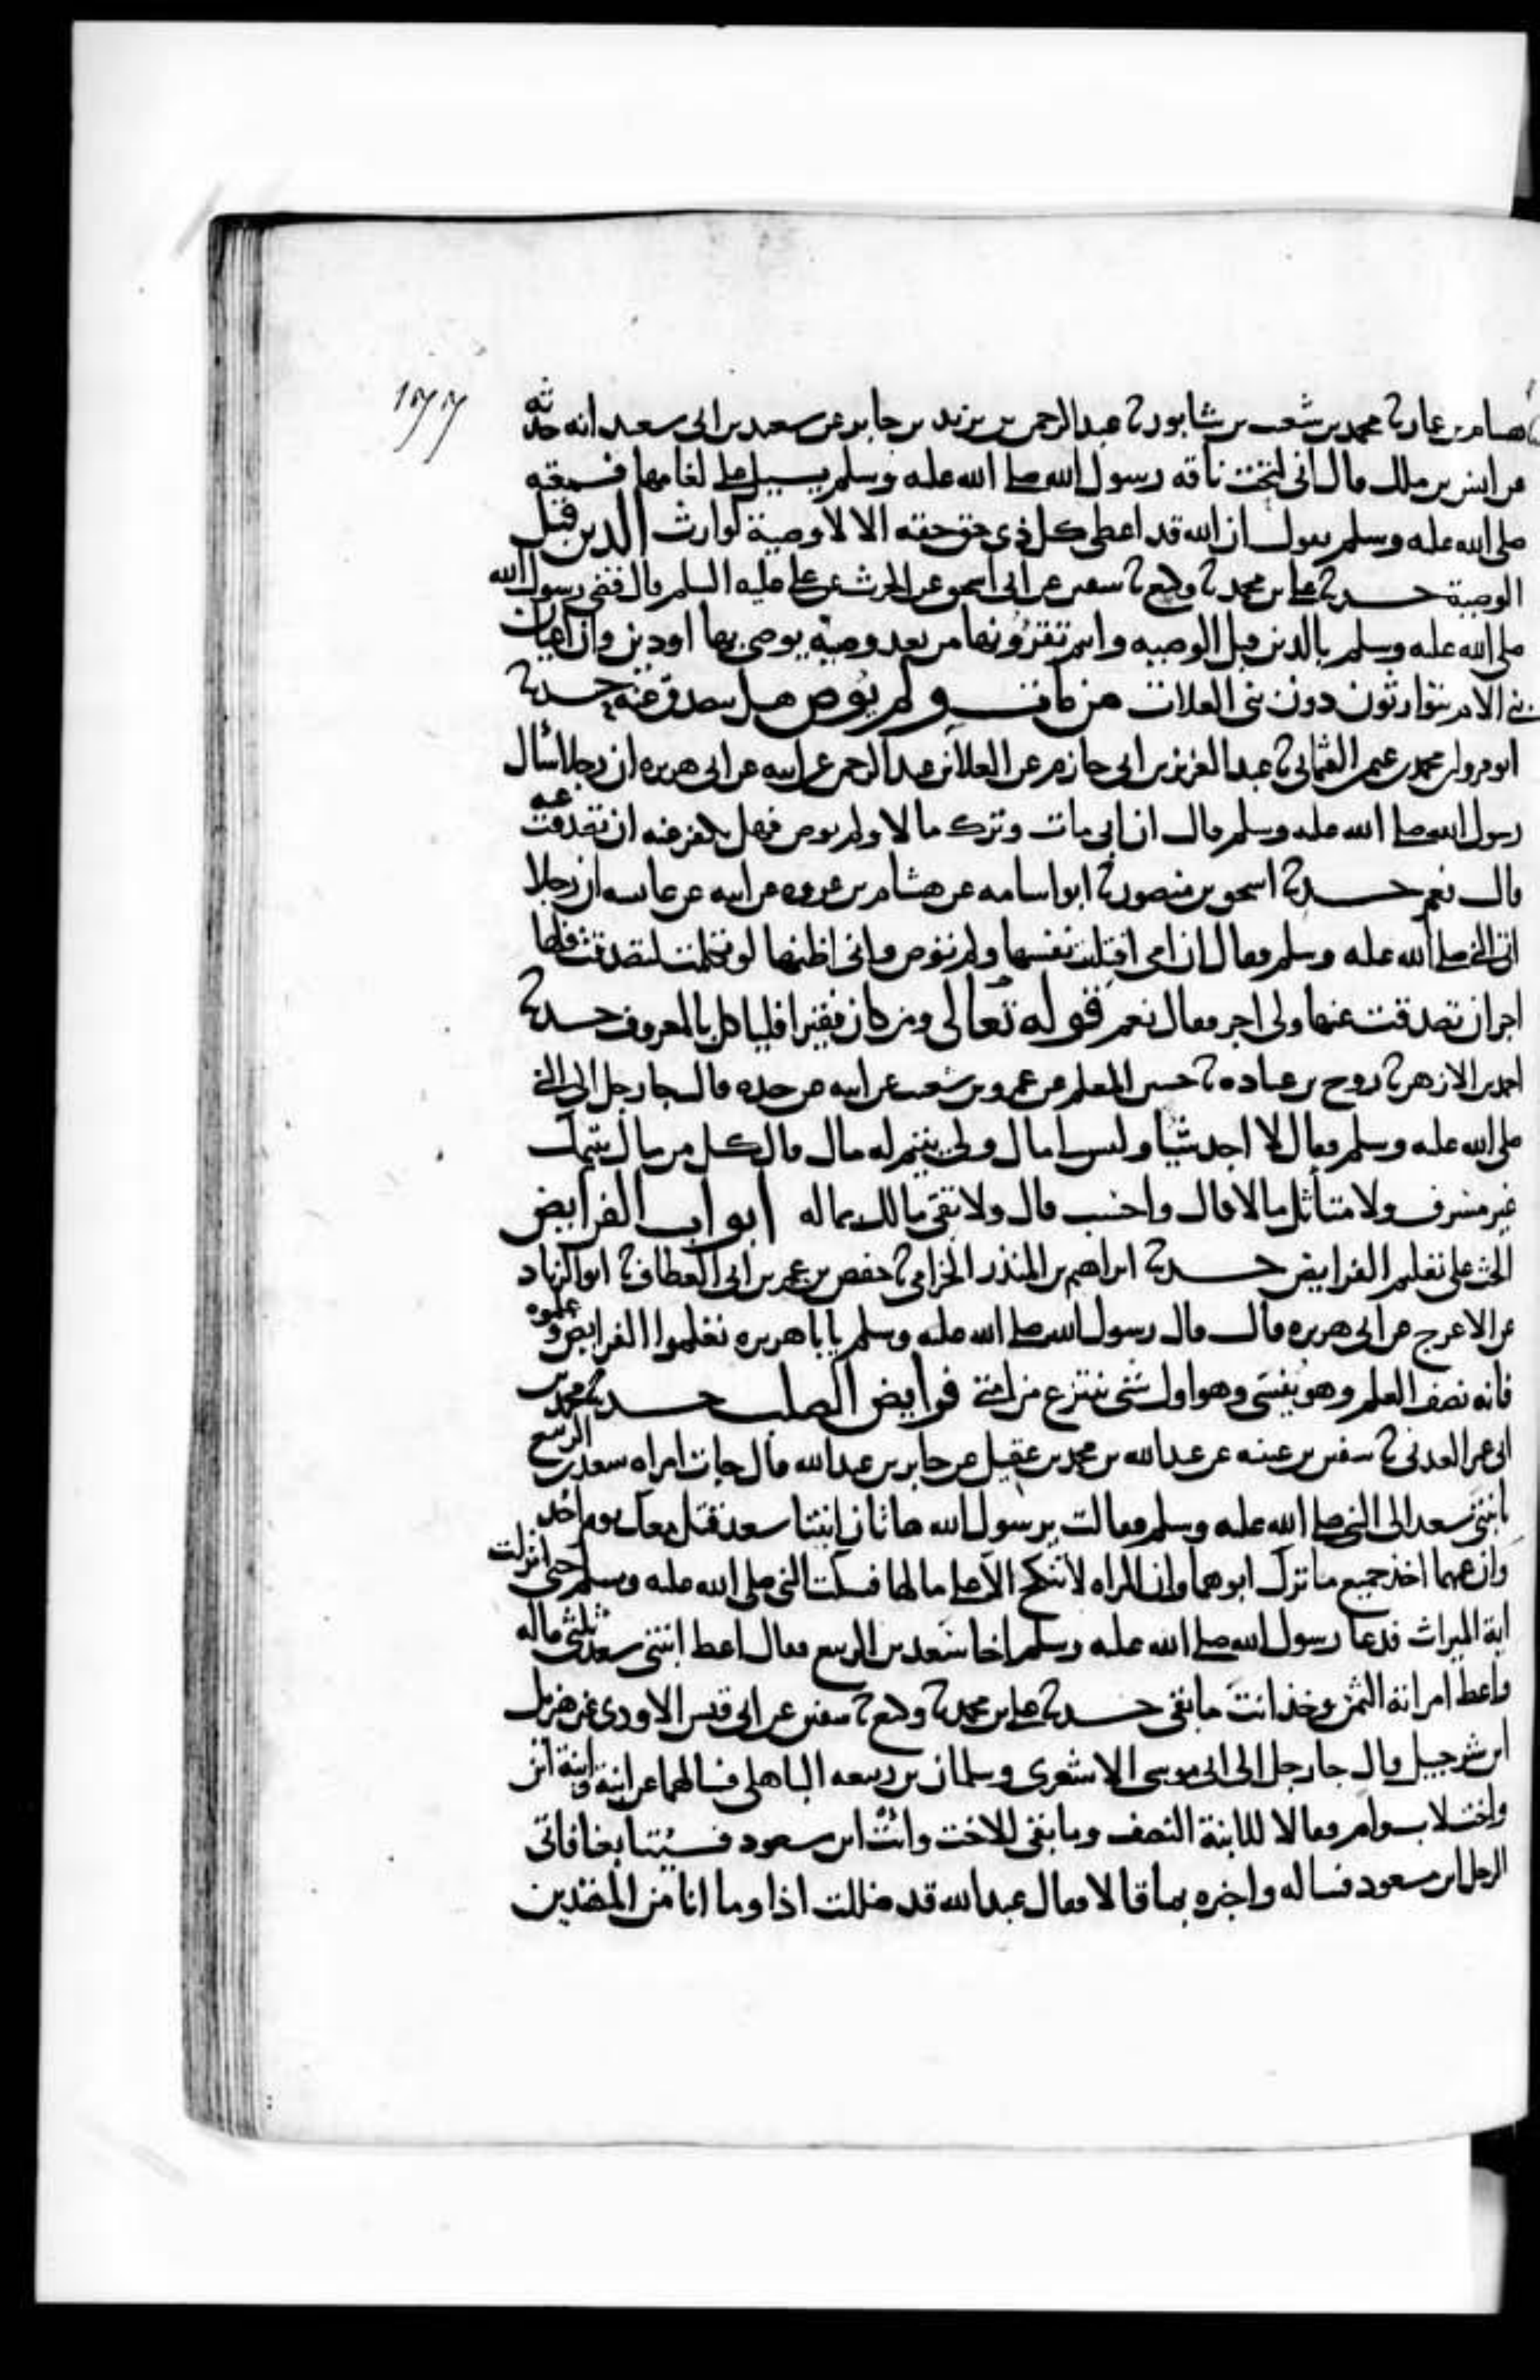 ١٣٣
هسام بن عمار ثنا محمد بن شعيب بن شابور ثنا عبد الرحمن بن يزيد بن جابر عن سعيد بن ابى سعيد انه حدثه
عن انس بن ملك قال انى لتحت ناقة رسول الله صلى الله عليه وسلم يسيل على لغامها فسمعته
صلى الله عليه وسلم يقول ان الله قد اعطى كل ذى حق حقه الا لا وصية لوارث الدين قبل
الوصية حدثنا على بن محمد ثنا وكيع ثنا سفين عن ابى اسحق عن الحرث عن على عليه السلم قال قضى رسول الله
صلى الله عليه وسلم بالدين قبل الوصية وانتم تقرؤنها من بعد وصية يوصى بها او دين وان اعيان
بنى الام يتوارثون دون بنى العلات من مات ولم يوص هل يتصدق عنه حدثنا
ابو مروان محمد بن عثمن العثمانى ثنا عبد العزيز بن ابى حازم عن العلا بن عبد الرحمن عن ابيه عن ابى هريرة ان رجلا سأل
رسول الله صلى الله عليه وسلم قال ان ابى مات وترك مالا ولم يوص فهل يكفر عنه ان تصدقت عنه
قال نعم حدثنا اسحق بن منصور ثنا ابو اسامة عن هشام بن عروه عن ابيه عن عايشه ان رجلا
اتى النبى صلى الله عليه وسلم فقال ان امى افتلتت نفسها ولم توص وانى اظنها لو تكلمت لتصدقت فلها
اجر ان تصدقت عنها ولى اجر فقال نعم قوله تعالى ومن كان فقيرا فلياكل بالمعروف حدثنا
احمد بن الازهر ثنا روح بن عبادة ثنا حسين المعلم عن عمرو بن شعيب عن ابيه عن جده قال جا رجل الى النبى
صلى الله عليه وسلم فقال لا اجد شيا وليس لى مال ولى يتيم له مال قال كل من مال يتيمك
غير مسرف ولا متأثل مالا قال واحسب قال ولا تقى مالك بماله ابواب الفرايض
الحث على تعليم الفرايض حدثنا ابراهيم بن المنذر الحزامى ثنا حفص بن عمر بن ابى العطاف ثنا ابو الزناد
عن الاعرج عن ابى هريره قال قال رسول الله صلى الله عليه وسلم يابا هريره تعلموا الفرايض وعلموه
فانه نصف العلم وهو ينسى وهو اول شى ينتزع من امتى فرايض الصلب حدثنا محمد بن
ابى عمر العدنى ثنا سفين بن عيينه عن عبد الله بن محمد بن عقيل عن جابر بن عبد الله قال جات امراه سعد بن الربيع
بابنتى سعد الى النبى صلى الله عليه وسلم فقالت يرسول الله هاتان ابنتا سعد قتل معك يوم احد
وان عمهما اخذ جميع ما ترك ابوهما وان المراه لا تنكح الا على مالها فسكت النبى صلى الله عليه وسلم حتى انزلت
اية الميراث فدعا رسول الله صلى الله عليه وسلم اخا سعد بن الربيع فقال اعط ابنتى سعد ثلثى ماله
واعط امراته الثمن وخذ انت ما بقى حدثنا على بن محمد ثنا وكيع ثنا سفين عن ابى قيس الاودى عن هزيل
ابن شرحبيل قال جا رجل الى ابى موسى الاشعرى وسلمان بن ربيعه الباهلى فسالهما عن ابنة وابنة ابن
واخت لاب وام فقالا للابنة النصف وما بقى للاخت وائت ابن مسعود فسيتابعنا فاتى
الرجل ابن مسعود فساله واخبره بما قالا فقال عبد الله قد ضللت اذا وما انا من المهتدين